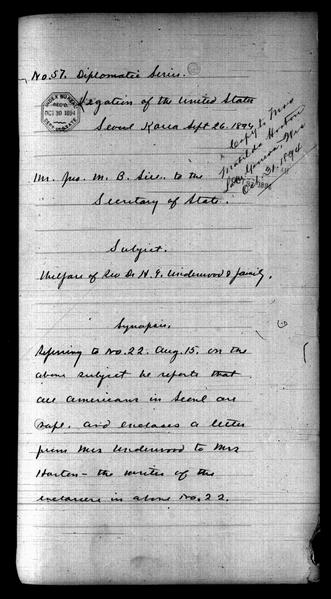 No. 57. Diplomatic Series.
INDEX BUREAU
REC'D
OCT 30 1894
DEPT. OF STATE
Legation of the United States
Seoul Korea Sept 26. 1894
Copy to Mrs
Matilda Horton
Lake Geneva, Wis
Oct. 31. 1894
Mr. Jno. M. B. Sill. to the
Secretary of State.
Subject.
Welfare of Rev Dr H. G. Underwood & family.
Synopsis.
Referring to No. 22. Aug. 15. on the
above subject he reports that
all Americans in Seoul are
safe. and encloses a letter
from Mrs Underwood to Mrs
Horton – the writer of the
enclosure in above No. 22.